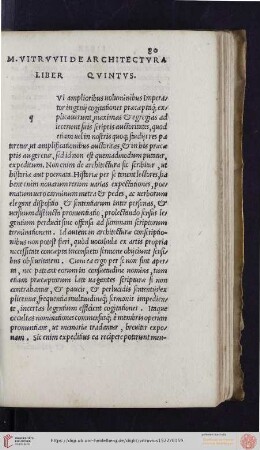 80
M. VITRVVII DE ARCHITECTVRA
LIBER QVINTVS.
VI amplioribus uoluminibus Impera-
tor ingenij cogitationes præceptaq; ex-
plicauerunt, maximas & egregias ad
iecerunt suis scriptis auctoritates, quod
etiam uel in nostris quoq; studijs res pa
teretur, ut amplificationibus auctoritas, & in his præce
ptis augeretur, sed id non est quemadmodum putatur,
expeditum. Non enim de architectura sic scribitur, ut
historiæ aut poemata. Historiæ per se tenent lectores, ha
bent enim nouarum rerum uarias expectationes, poe-
matum uero carminum metra & pedes, ac uerborum
elegans dispositio, & sententiarum inter personas, &
uersuum distincta pronuntiatio, prolectando sensus le
gentium perducit sine offensa ad summam scriptorum
terminationem. Id autem in architecturæ conscriptio-
nibus non potest fieri, quod uocabula ex artis propria
necessitate concepta inconsueto sermone obijciunt sensi
bus obscuritatem. Cum ea ergo per se non sint aper-
ta, nec pateant eorum in consuetudine nomina, tum
etiam præceptorum late uagantes scripturæ si non
contrahantur, & paucis, & perlucidis sententijs ex
plicentur, frequentia multitudineq; sermonis impedien-
te, incertas legentium efficient cogitationes. Itaque
occultas nominationes commensusq; è membris operum
pronuntians, ut memoriæ tradantur, breuiter expo-
nam. Sic enim expeditius ea recipere poterunt men-